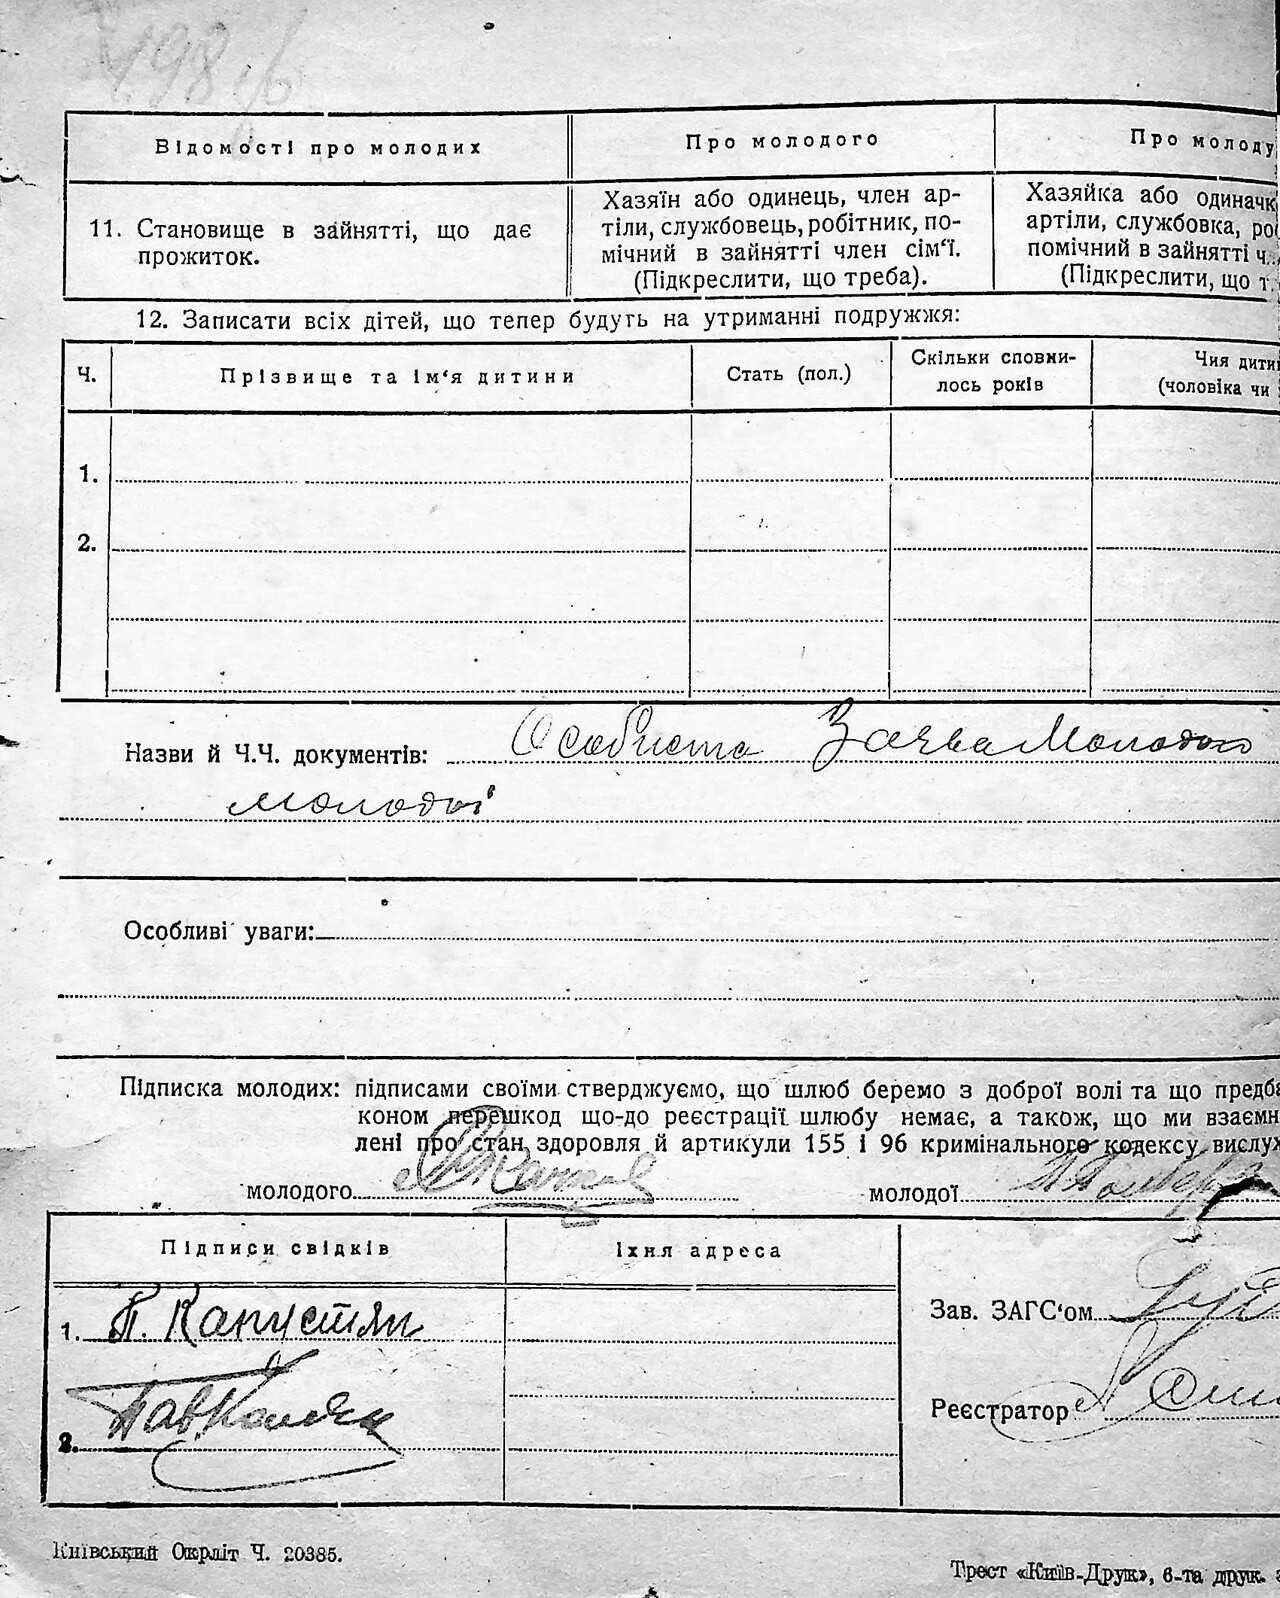 198
Відомості про молодих
Про молодого
Про молоду
11. Становище в зайнятті, що дає
прожиток.
Хазяїн або одинець, член ар-
тіли, службовець, робітник, по-
мічний в зайнятті член сім'ї.
(Підкреслити, що треба).
Хазяйка або одиначк
артіли, службовка, ро
помічний в зайнятті ч
(Підкреслити, що т
12. Записати всіх дітей, що тепер будуть на утриманні подружжя:
Ч.
Прізвище та ім'я дитини
Стать (пол.)
Скільки сповни-
лось років
Чия дити
(чоловіка чи
1.
2.
Назви й Ч.Ч. документів: Особиста Заява Молодого
молодої
Особливі уваги:
Підписка молодих: підписами своїми стверджуємо, що шлюб беремо з доброї волі та що предба
коном перешкод що-до реєстрації шлюбу немає, а також, що ми взаємн
лені про стан здоровля й артикули 155 і 96 кримінального кодексу вислух
молодого
молодої
Підписи свідків
Їхня адреса
1. П. Капустян
2.
Зав. ЗАГС'ом
Реєстратор
Київський Окрліт Ч. 20385.
Трест «Київ-Друк», 6-та друк. з